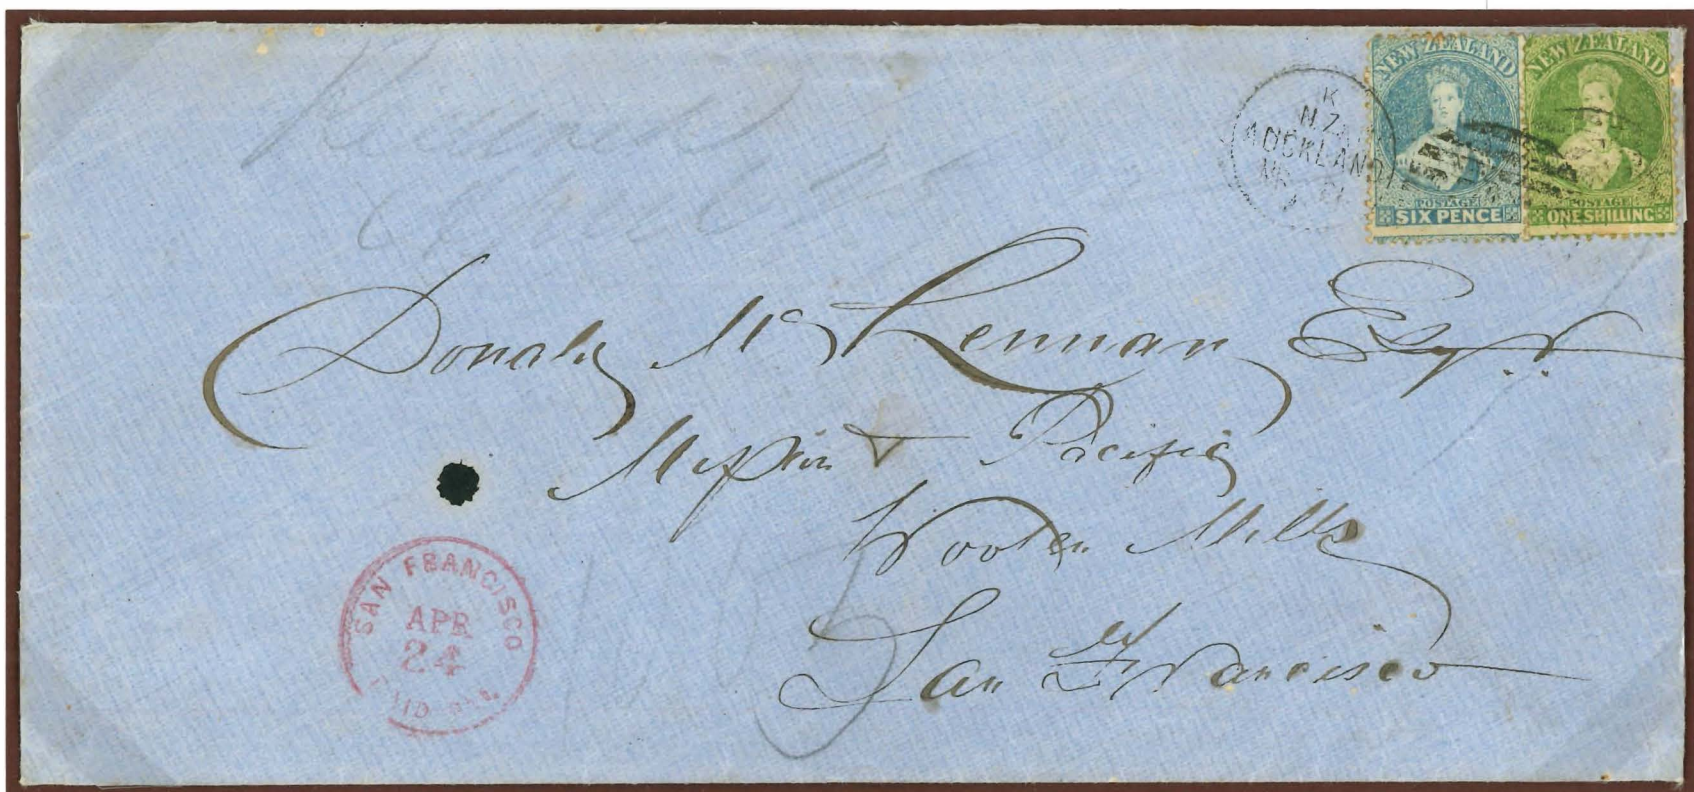 NEW ZEALAND
POSTAGE
SIX PENCE
NEW ZEALAND
POSTAGE
ONE SHILLING
K
N.Z.
AUCKLAND
Donald McLennan Esqr
Mission & Pacific
Woolen Mills
San Francisco
SAN FRANCISCO
APR
24
PAID ALL